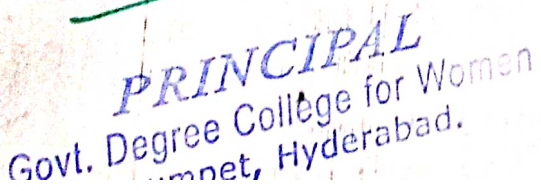 PRINCIPAL
Govt. Degree College for Women
Hyderabad.